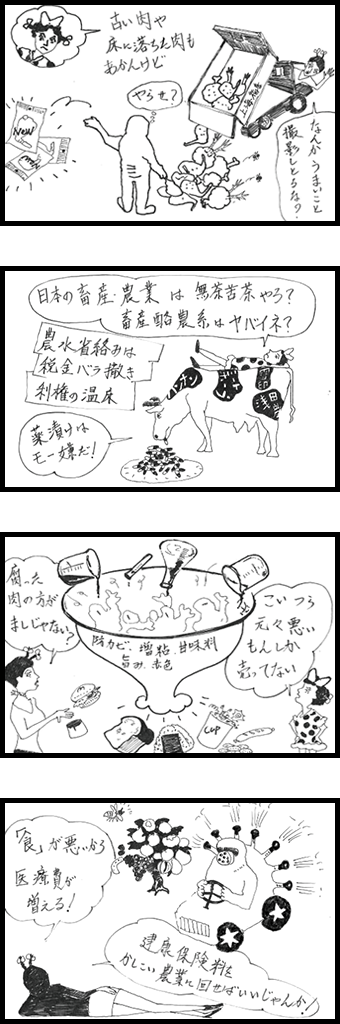 古い肉や
床に落ちた肉も
あかんけど
やらせ?
なんかうまいこと
撮影しとるな?
New
日本の畜産・農業は無茶苦茶やろ?
畜産酪農系はヤバイネ?
農水省絡みは
税金バラ撒き
利権の温床
浅田
薬漬けは
モー嫌だ!
腐った
肉の方が
ましじゃない?
こいつら
元々悪い
もんしか
売ってない
防カビ、増粘、甘味料
旨み、着色
CUP
「食」が悪いから
医療費が
増える!
健康保険料を
かしこい農業に回せばいいじゃんか!